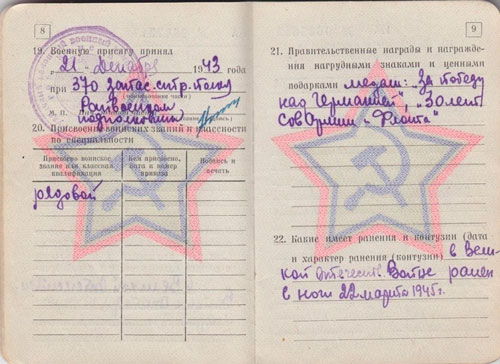 8
19. Военную присягу принял
21 - Декабря 1943 года
при 370 запас. стр. полка
м. п.
Райвоенком
подполковник
20. Присвоение воинских званий и классности
по специальности
Присвоено воинское звание или классная квалификация
Кем присвоено, дата и номер приказа
Подпись и печать
рядовой
9
21. Правительственные награды и награждения
нагрудными знаками и ценными
подарками медаль: "За победу
над Германией", "30 лет
Сов Армии и Флота"
22. Какие имеет ранения и контузии (дата
и характер ранения (контузии) в Вели-
кой Отечеств. Войне ранен
в ноги 22 марта 1945 г.